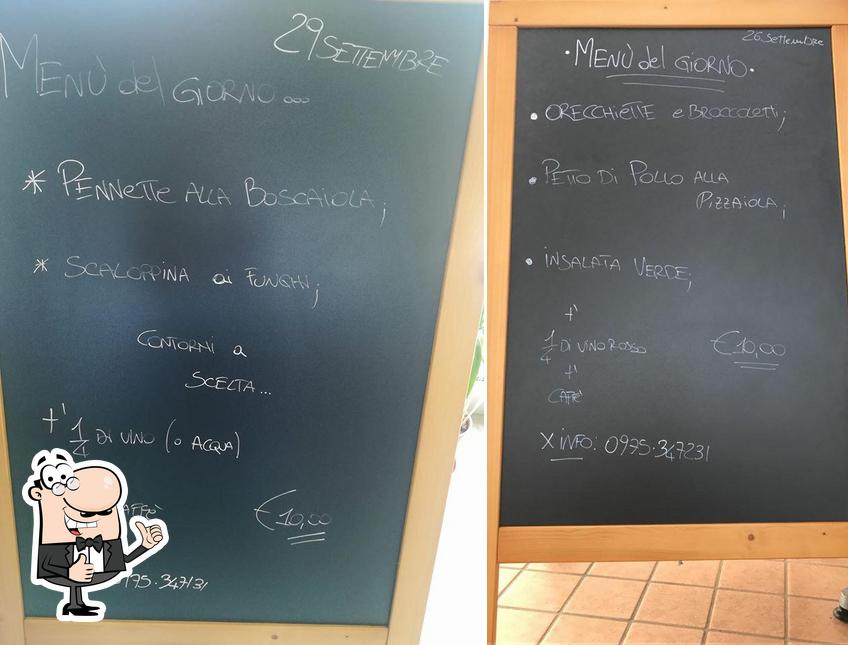 29 SETTEMBRE
MENÙ del GIORNO...
* PENNETTE ALLA BOSCAIOLA;
* SCALOPPINA ai FUNGHI;
CONTORNI a
SCELTA...
+
1/4 DI VINO (o ACQUA)
€ 10,00
26 Settembre
• MENÙ del GIORNO •
• ORECCHIETTE e BROCCOLETTI;
• PETTO DI POLLO ALLA
PIZZAIOLA;
• INSALATA VERDE;
+
1/4 DI VINO ROSSO
€ 10,00
+
CAFFE'
X INFO: 0975.347231